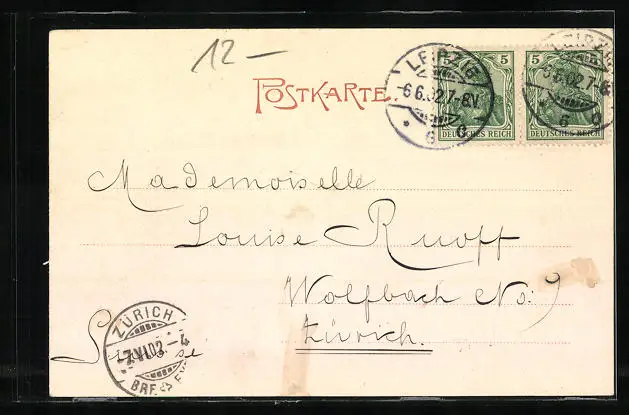 12 —
POSTKARTE.
5 5 5
LEIPZIG
6.6.02.7-8V.
* 8 g
DEUTSCHES REICH
LEIPZIG
6.6.02.7-8
6
DEUTSCHES REICH
Mademoiselle
Louise Ruoff
Wolfbach No. 9
Zürich.
Suisse
ZÜRICH
-7.VI.02.-4